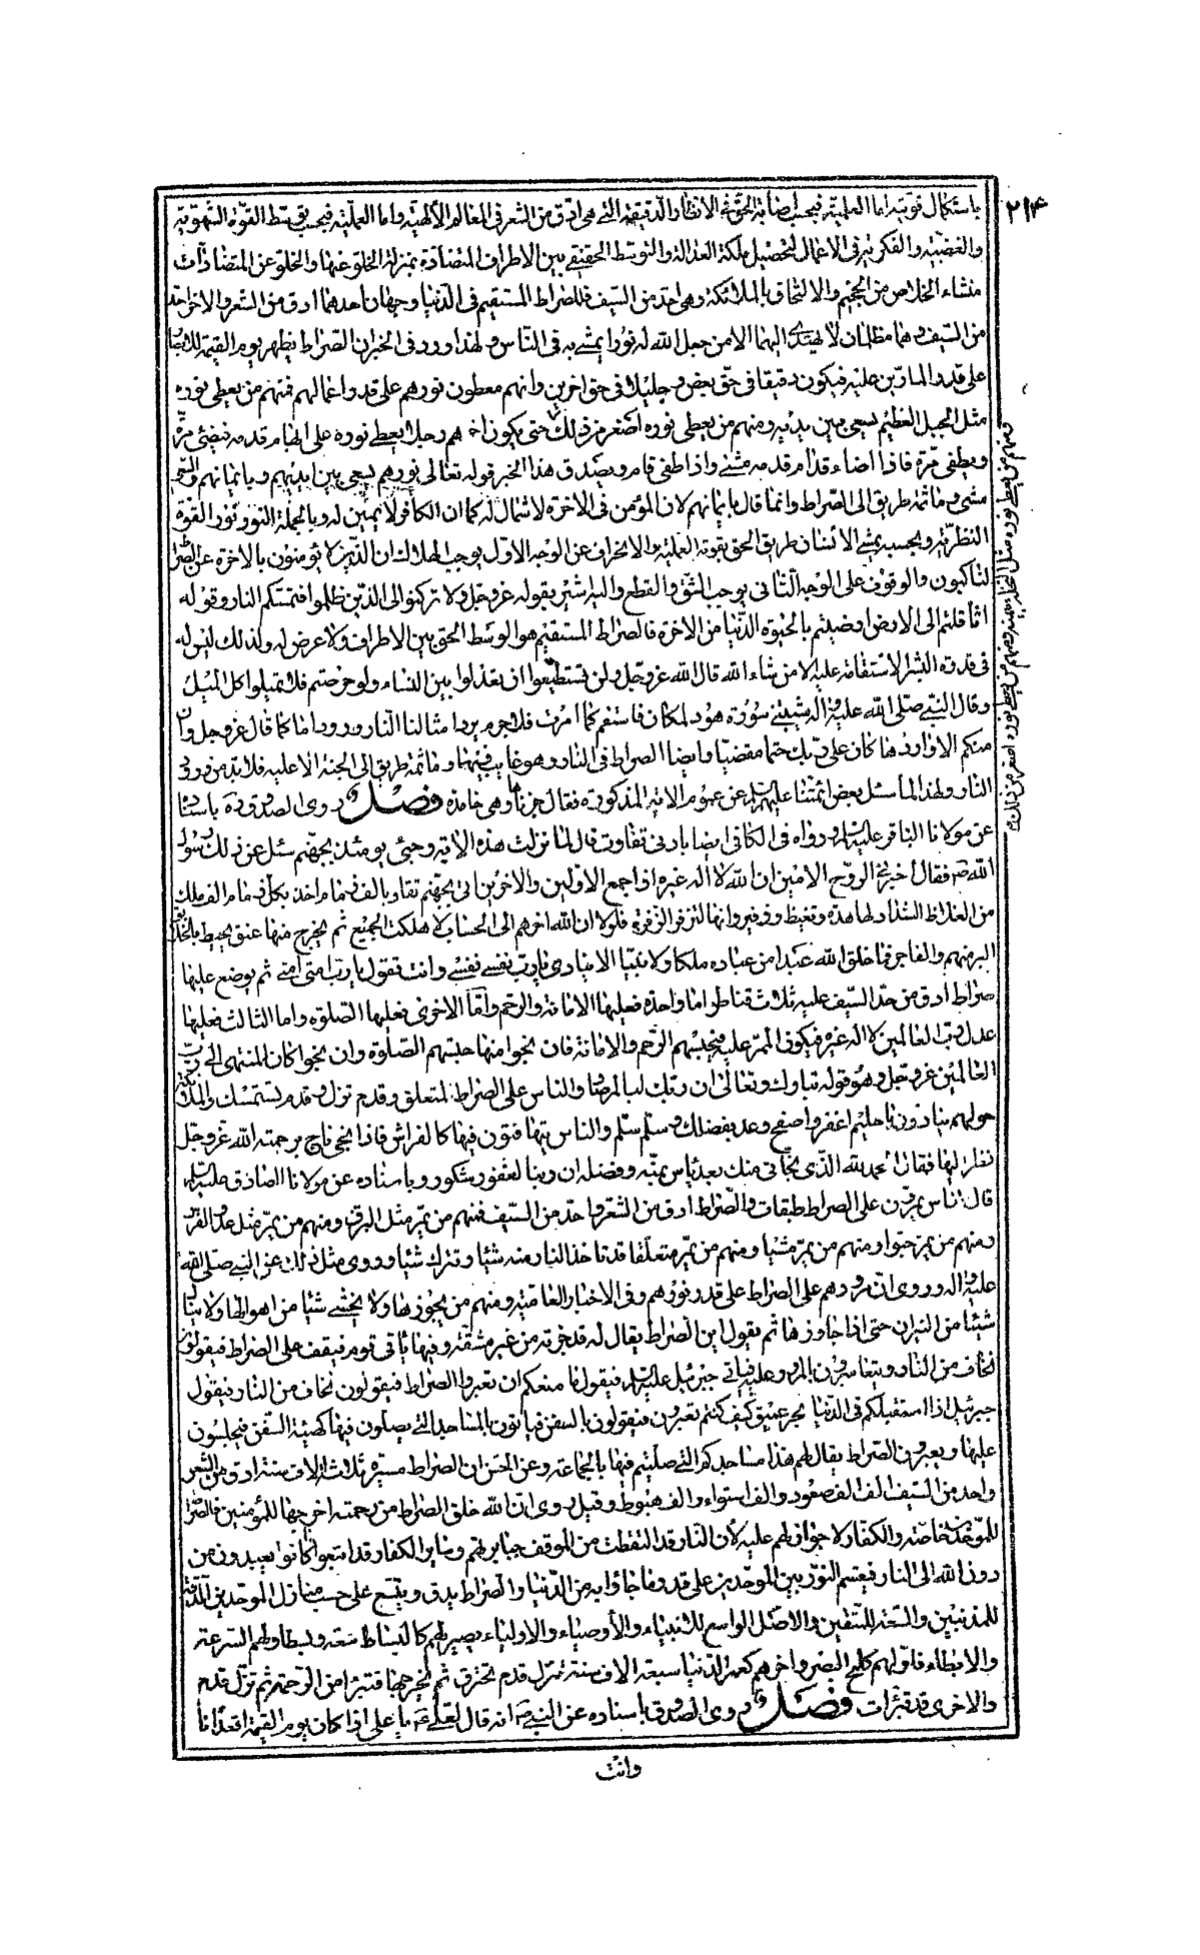 ٢١٤
باستكمال قوتيه اما العلمية فبحسب اصابة الحق في الانظار الدقيقة التي هي ادق من الشعر في المعالم الالهية واما العملية فبحسب توسط القوة الشهوية
والغضبية والفكرية في الاعمال لتحصيل ملكة العدالة والتوسط الحقيقي بين الاطراف المتضادة بمنزلة الخلو عنها والخلو عن المتضادات
منشاء الخلاص من الجحيم والالتحاق بالملائكة وهي احد من السيف فللصراط المستقيم في الدنيا وجهان احدهما ادق من الشعر والاخر احد
من السيف وهما مظلمان لا يهتدي اليهما الا من جعل الله له نورا يمشي به في الناس ولهذا ورد في الخبر ان الصراط يظهر يوم القيمة للابصار
على قدر المارين عليه فيكون دقيقا في حق بعض وجليلا في حق اخرين وانهم معطون نورهم على قدر اعمالهم فمنهم من يعطى نوره
مثل الجبل العظيم يسعى بين يديه ومنهم من يعطى نوره اصغر من ذلك حتى يكون اخرهم رجلا يعطى نوره على ابهام قدمه فيضئ مرة
ويطفى مرة فاذا اضاء قدام قدمه مشى واذا طفى قام ويصدق هذا الخبر قوله تعالى نورهم يسعى بين ايديهم وبايمانهم والسعى
مشى وما ثمة طريق الى الصراط وانما قال بايمانهم لان المؤمن في الاخرة لا شمال له كما ان الكافر لا يمين له وبالجملة النور نور القوة
النظرية وبحسبه يمشي الانسان طريق الحق بقوته العملية والانحراف عن الوجه الاول يوجب الهلاك ان الذين لا يؤمنون بالاخرة عن الصراط
لناكبون والوقوف على الوجه الثاني يوجب الشق والقطع واليه اشير بقوله عز وجل ولا تركنوا الى الذين ظلموا فتمسكم النار وقوله
اثاقلتم الى الارض ارضيتم بالحيوة الدنيا من الاخرة فالصراط المستقيم هو الوسط الحق بين الاطراف ولا عرض له ولذلك ليس له
في قدرة البشر الاستقامة عليه الا من شاء الله قال الله عز وجل ولن تستطيعوا ان تعدلوا بين النساء ولو حرصتم فلا تميلوا كل الميل
وقال النبي صلى الله عليه واله شيبتني سورة هود لمكان فاستقم كما امرت فلا جرم يرد امثالنا النار ورودا ما كما قال عز وجل وان
منكم الا واردها كان على ربك حتما مقضيا وايضا الصراط في النار وهو غايب فيها وما ثمة طريق الى الجنة الا عليه فلا بد من ورود
النار ولهذا لما سئل بعض ائمتنا عليهم السلام عن عموم الاية المذكورة فقال جزناها وهي خامدة فصل روى الصدوق ره باسناده
عن مولانا الباقر عليه السلام ورواه في الكافي ايضا بادنى تفاوت قال لما نزلت هذه الاية وجئ يومئذ بجهنم سئل عن ذلك رسول
الله ص فقال اخبرني الروح الامين ان الله لا اله غيره اذا جمع الاولين والاخرين اتى بجهنم تقاد بالف زمام اخذ بكل زمام الف ملك
من الغلاظ الشداد لها هدة وتغيظ وزفير وانها لتزفر الزفرة فلولا ان الله اخرهم الى الحساب لاهلكت الجميع ثم يخرج منها عنق يحيط بالخلايق
البر منهم والفاجر فما خلق الله عبدا من عباده ملكا ولا نبيا الا ينادى يا رب نفسي نفسي وانت تقول يا رب امتى امتي ثم يوضع عليها
صراط ادق من حد السيف عليه ثلاث قناطر اما واحدة فعليها الامانة والرحم واما الاخرى فعليها الصلوة واما الثالث فعليها
عدل رب العالمين لا اله غيره فيكون الممر عليه فيحبسهم الرحم والامانة فان نجوا منها حبتهم الصلوة وان نجوا كان المنتهى الى رب
العالمين عز وجل وهو قوله تبارك وتعالى ان ربك لبالمرصاد والناس على الصراط فمتعلق وقدم تزل وقدم يستمسك والملائكة
حولهم ينادون يا حليم اغفر واصفح وعد بفضلك وسلم سلم والناس يتهافتون فيها كالفراش فاذا نجى ناج برحمة الله عز وجل
نظر اليها فقال الحمد لله الذي نجاني منك بعد ياس بمنه وفضله ان ربنا لغفور شكور وباسناده عن مولانا الصادق عليه السلام
قال الناس يمرون على الصراط طبقات والصراط ادق من الشعر واحد من السيف فمنهم من يمر مثل البرق ومنهم من يمر مثل عدو الفرس
ومنهم من يمر حبوا ومنهم من يمر مشيا ومنهم من يمر متعلقا قد تاخذ النار منه شيئا وتترك شيئا وروى مثل ذلك عن النبي صلى الله
عليه واله وروى ان مرورهم على الصراط على قدر نورهم وفي الاخبار العامية ومنهم من يجوزها ولا يخشى شيئا من اهوالها ولا ينال
شيئا من النيران حتى اذا جاوزها ثم يقول اين الصراط يقال له قد جزته من غير مشقة وفيها ياتي قوم فيقف على الصراط فيقولون
نخاف من النار ويتعاسرون بالمرور عليه فياتي جبرئيل عليه السلام فيقول ما منعكم ان تعبروا الصراط فيقولون نخاف من النار فيقول
جبرئيل اذا استقبلكم في الدنيا بحر عميق كيف كنتم تعبرون فيقولون بالسفن فياتون بالمساجد التي يصلون فيها كهيئة السفن فيجلسون
عليها ويعبرون الصراط يقال لهم هذا مساجدكم التي صليتم فيها بالجماعة وعن الحسن ان الصراط مسيره ثلاثة الاف سنة ادق من الشعر
واحد من السيف الف صعود والف استواء والف هبوط وقيل روى ان الله خلق الصراط من رحمته اخرجها للمؤمنين فالصراط
للموحدين خاصة والكفار لا جواز لهم عليه لان النار قد التقطت من الموقف جبابرتهم وساير الكفار قد اتبعوا ما كانوا يعبدون من
دون الله الى النار فيقسم النور بين الموحدين على قدر ما جاؤا به من الدنيا والصراط يدق ويتسع على حسب منازل الموحدين الدقة
للمذنبين والسعة للمتقين والاصل الواسع للانبياء والاوصياء والاولياء يصير لهم كالبساط سعة وبسطا ولهم السرعة
والابطاء فاولهم كلمح البصر واخرهم كعمر الدنيا سبعة الاف سنة تزل قدم تحترق ثم يخرجها فتبرا من الرحمة ثم تزل قدم
والاخرى قد تبرات فصل روى الصدوق باسناده عن النبي ص انه قال لعلي ع يا علي اذا كان يوم القيمة اقعد انا
وانت
ومنهم من يعطى نوره مثل النخلة بيمينه ومنهم من يعطى نوره اصغر من ذلك